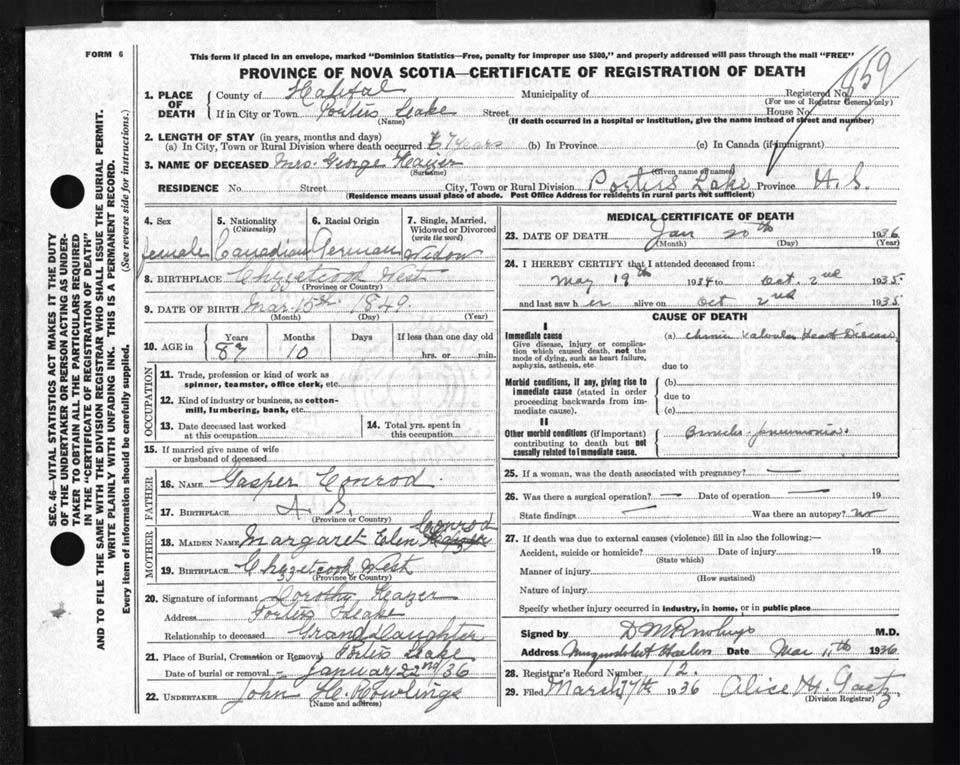 FORM 6
This form if placed in an envelope, marked "Dominion Statistics—Free, penalty for improper use $300," and properly addressed will pass through the mail "FREE"
PROVINCE OF NOVA SCOTIA—CERTIFICATE OF REGISTRATION OF DEATH
859
1. PLACE OF DEATH
County of Halifax Municipality of Registered No.
(For use of Registrar General only)
If in City or Town Porters Lake Street House No.
(Name) (If death occurred in a hospital or institution, give the name instead of street and number)
2. LENGTH OF STAY (in years, months and days)
(a) In City, Town or Rural Division where death occurred years (b) In Province (c) In Canada (if immigrant)
3. NAME OF DECEASED Mrs. George
(Surname) (Given name or names)
RESIDENCE No. Street City, Town or Rural Division Porters Lake Province N. S.
(Residence means usual place of abode. Post Office Address for residents in rural parts not sufficient)
4. Sex
female
5. Nationality
(Citizenship)
Canadian
6. Racial Origin
German
7. Single, Married, Widowed or Divorced
(write the word)
Widow
8. BIRTHPLACE Chezzetcook West
(Province or Country)
9. DATE OF BIRTH Mar. 15th 1849
(Month) (Day) (Year)
10. AGE in
Years Months Days If less than one day old
87 10 hrs. or min.
OCCUPATION
11. Trade, profession or kind of work as spinner, teamster, office clerk, etc.
12. Kind of industry or business, as cotton-mill, lumbering, bank, etc.
13. Date deceased last worked at this occupation
14. Total yrs. spent in this occupation
15. If married give name of wife or husband of deceased
FATHER
16. NAME Gasper Conrod
17. BIRTHPLACE N. S.
(Province or Country)
MOTHER
18. MAIDEN NAME Margaret Elen Conrod
19. BIRTHPLACE Chezzetcook West
(Province or Country)
20. Signature of informant Dorothy
Address Porters Lake
Relationship to deceased Grand Daughter
21. Place of Burial, Cremation or Removal Porters Lake
Date of burial or removal January 22nd/36
22. UNDERTAKER John H. Rowlings
(Name and address)
MEDICAL CERTIFICATE OF DEATH
23. DATE OF DEATH Jan 20th 1936
(Month) (Day) (Year)
24. I HEREBY CERTIFY that I attended deceased from:
May 19th 1934 to Oct. 2nd 1935
and last saw h er alive on Oct 2nd 1935
CAUSE OF DEATH
I
Immediate cause
Give disease, injury or complication which caused death, not the mode of dying, such as heart failure, asphyxia, asthenia, etc.
(a) Chronic Valvular Heart Disease
due to
Morbid conditions, if any, giving rise to immediate cause (stated in order proceeding backwards from immediate cause).
(b)
due to
(c)
II
Other morbid conditions (if important) contributing to death but not causally related to immediate cause.
Broncho-pneumonia.
25. If a woman, was the death associated with pregnancy? —
26. Was there a surgical operation? — Date of operation — 19
State findings — Was there an autopsy? no
27. If death was due to external causes (violence) fill in also the following:—
Accident, suicide or homicide? Date of injury 19
(State which)
Manner of injury
(How sustained)
Nature of injury
Specify whether injury occurred in industry, in home, or in public place
Signed by M.D.
Address Musquodoboit Date Mar 11th 1936
28. Registrar's Record Number 12.
29. Filed March 1936 Alice H. Gaetz
(Division Registrar)
SEC. 46—VITAL STATISTICS ACT MAKES IT THE DUTY OF THE UNDERTAKER OR PERSON ACTING AS UNDERTAKER TO OBTAIN ALL THE PARTICULARS REQUIRED IN THE "CERTIFICATE OF REGISTRATION OF DEATH" AND TO FILE THE SAME WITH THE DIVISION REGISTRAR WHO SHALL ISSUE THE BURIAL PERMIT.
WRITE PLAINLY WITH UNFADING INK. THIS IS A PERMANENT RECORD.
Every item of information should be carefully supplied. (See reverse side for instructions.)